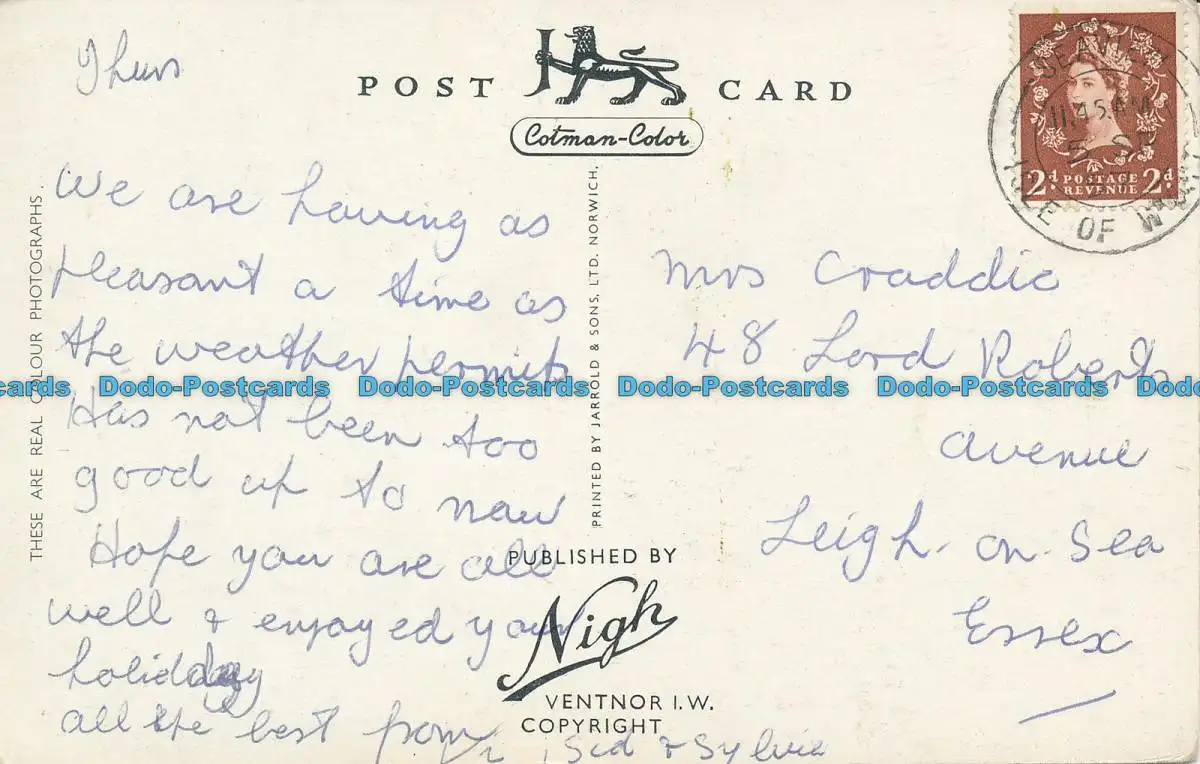 Thurs
POST CARD
Cotman-Color
We are having as
pleasant a time as
the weather permits
Has not been too
good up to now
Hope you are all
well & enjoyed your
holiday
all the best from
Sid & Sylvia
THESE ARE REAL COLOUR PHOTOGRAPHS.
PRINTED BY JARROLD & SONS, LTD. NORWICH.
PUBLISHED BY
Nigh
VENTNOR I.W.
COPYRIGHT
Mrs Craddic
48 Lord Roberts
avenue
Leigh-on-Sea
Essex
2d POSTAGE REVENUE 2d
11.45 AM
5 SE
ISLE OF WIGHT
Dodo-Postcards Dodo-Postcards Dodo-Postcards Dodo-Postcards Dodo-Postcards